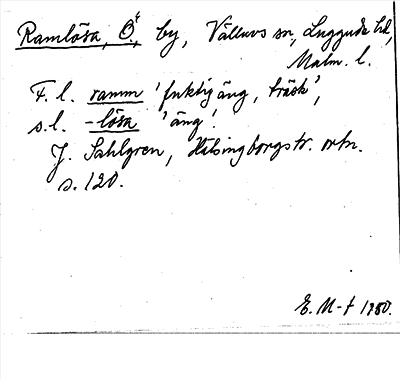 Ramlösa, Ö., by, Välluvs sn, Luggude hd,
Malm. l.
F. l. ramm 'fuktig äng, träsk',
s. l. -lösa 'äng'.
J. Sahlgren, Hälsingborgstr. ortn.
s. 120.
E. M-t 1980.